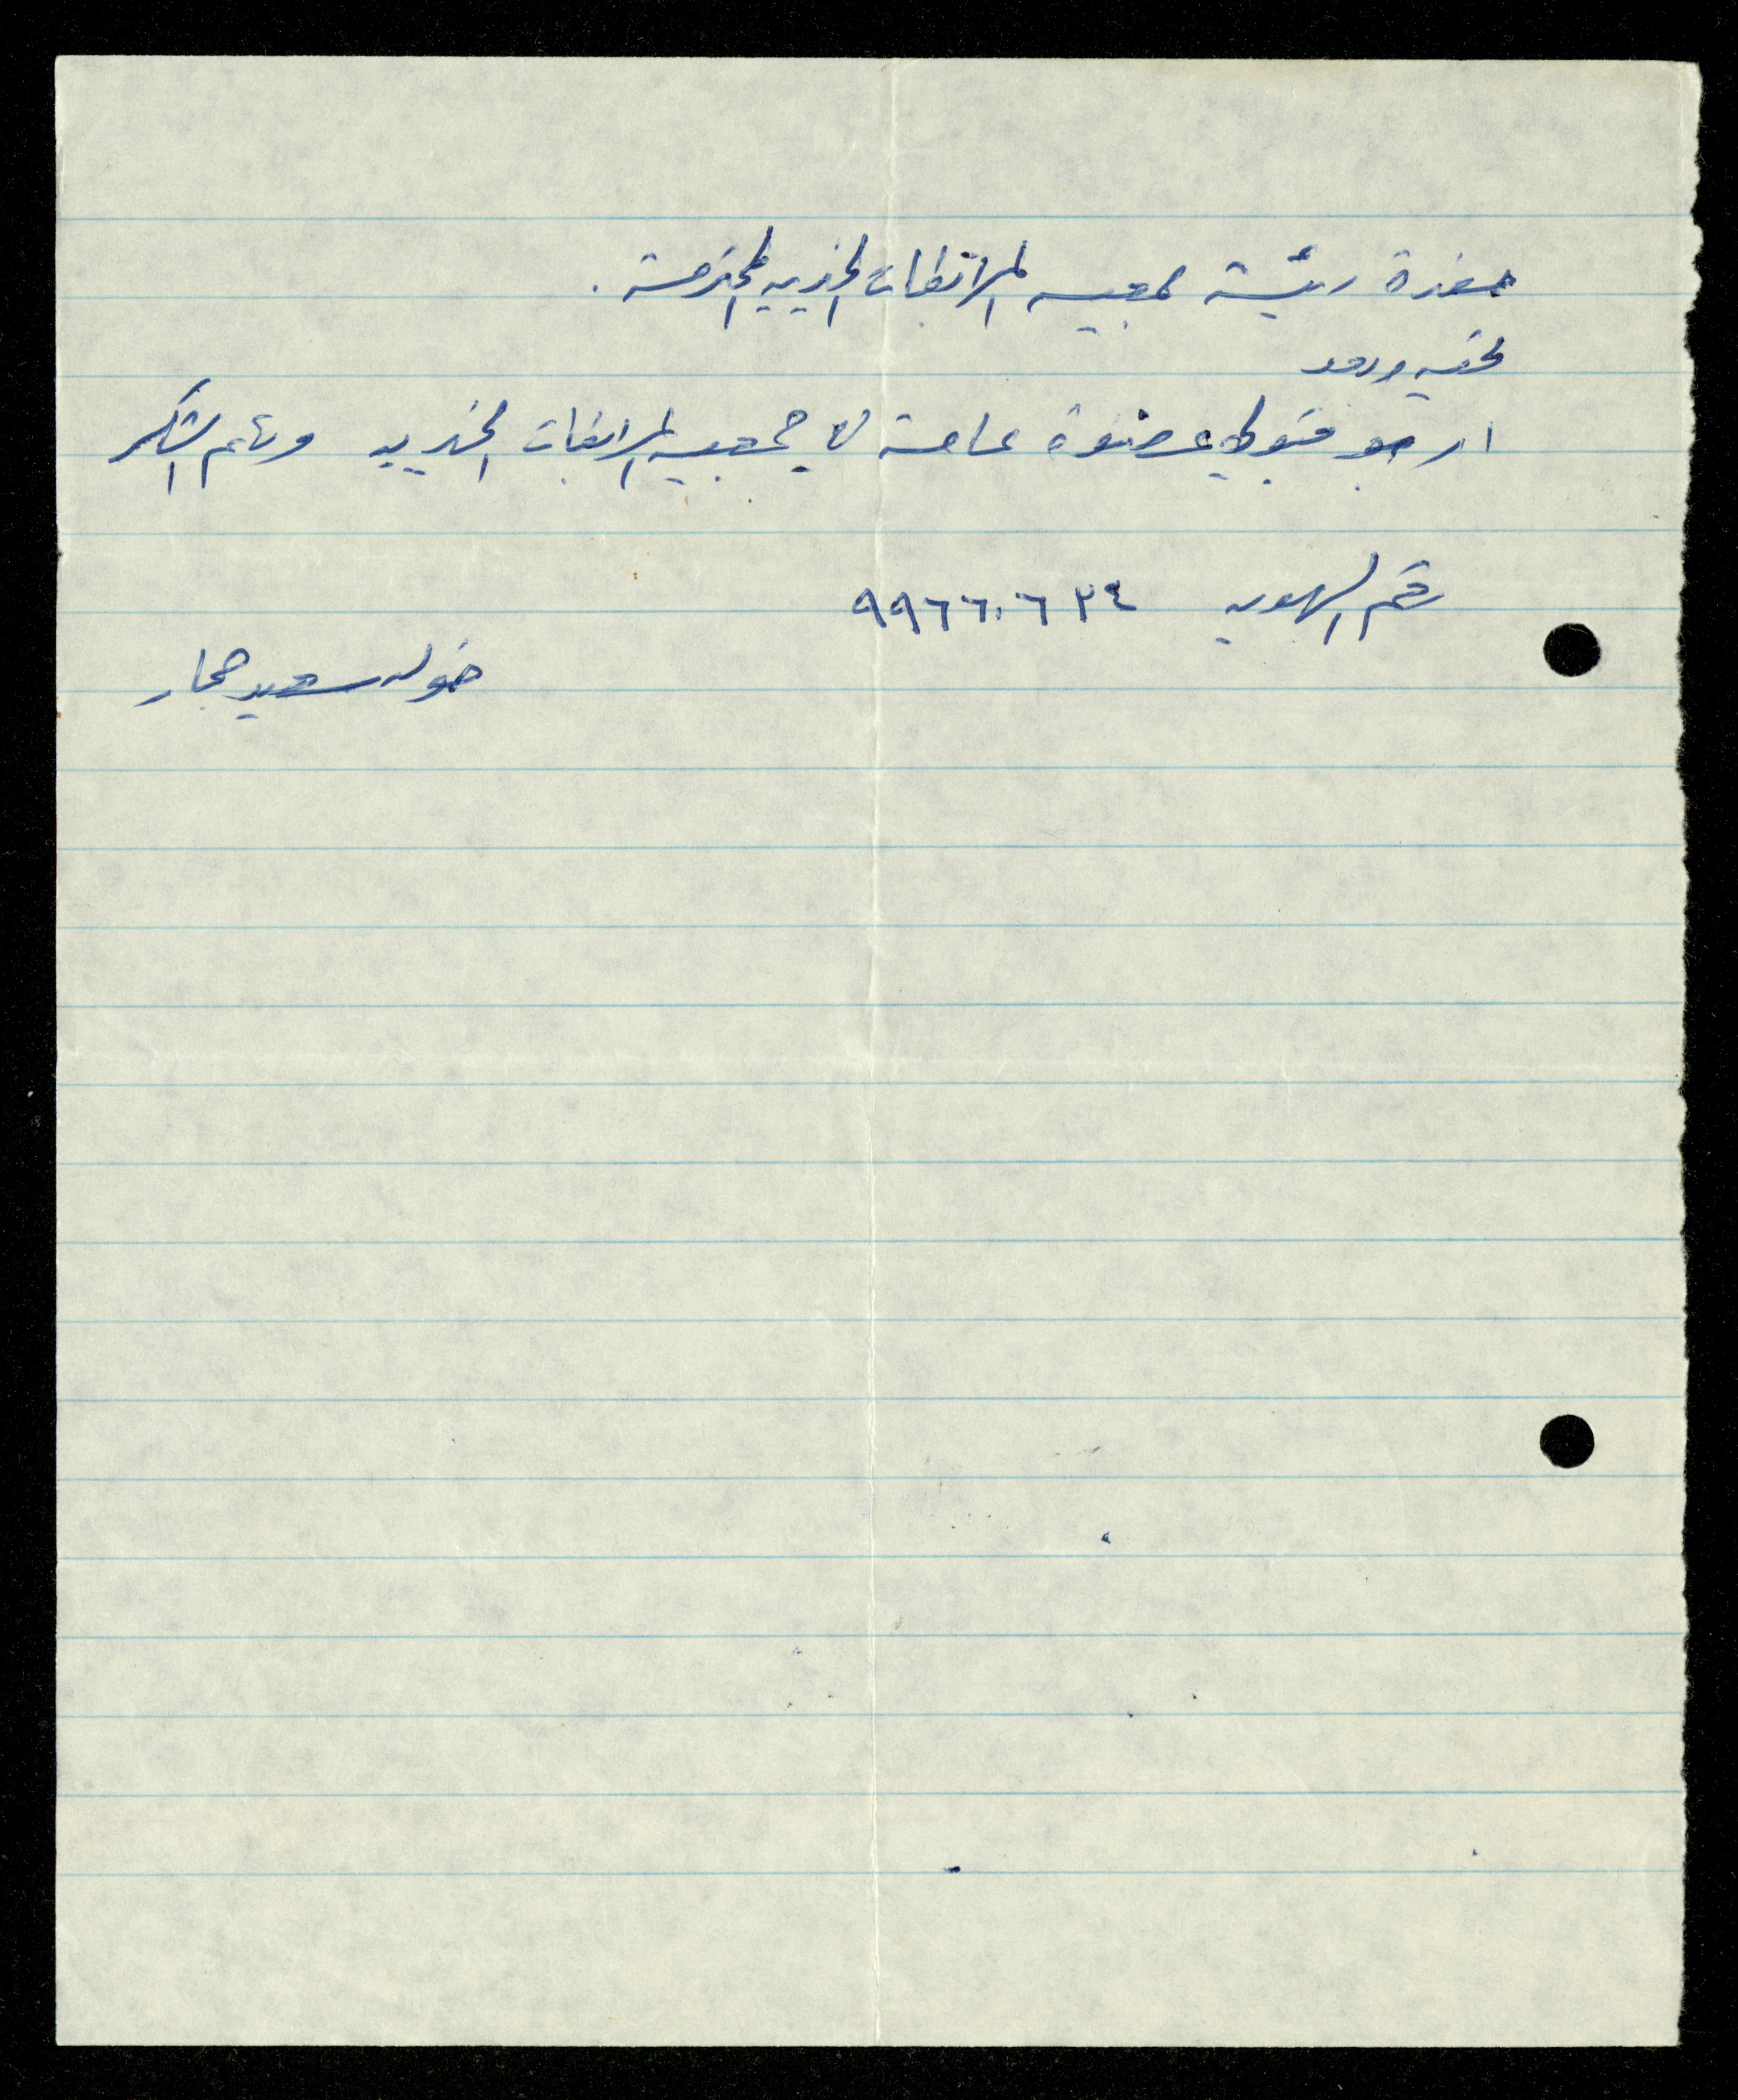 حضرة رئيسة جمعيه المرابطات الخيريه المحترمة .
تحيه وبعد
ارجو قبولي عضوة عاملة في جمعيه المرابطات الخيريه ولكم الشكر
رقم الهويه ٩٩٦٦٠٦٣٤
خوله سعيد حجار